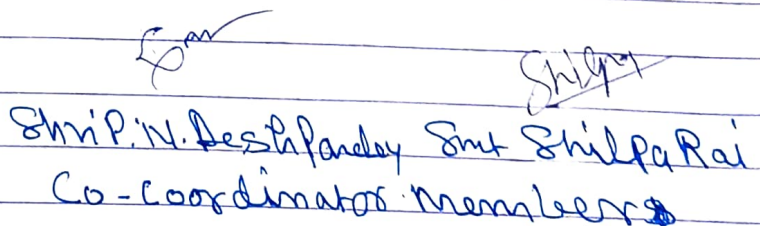 Shilpa
Shri P. N. Deshpandey Smt Shilpa Rai
Co-coordinator members